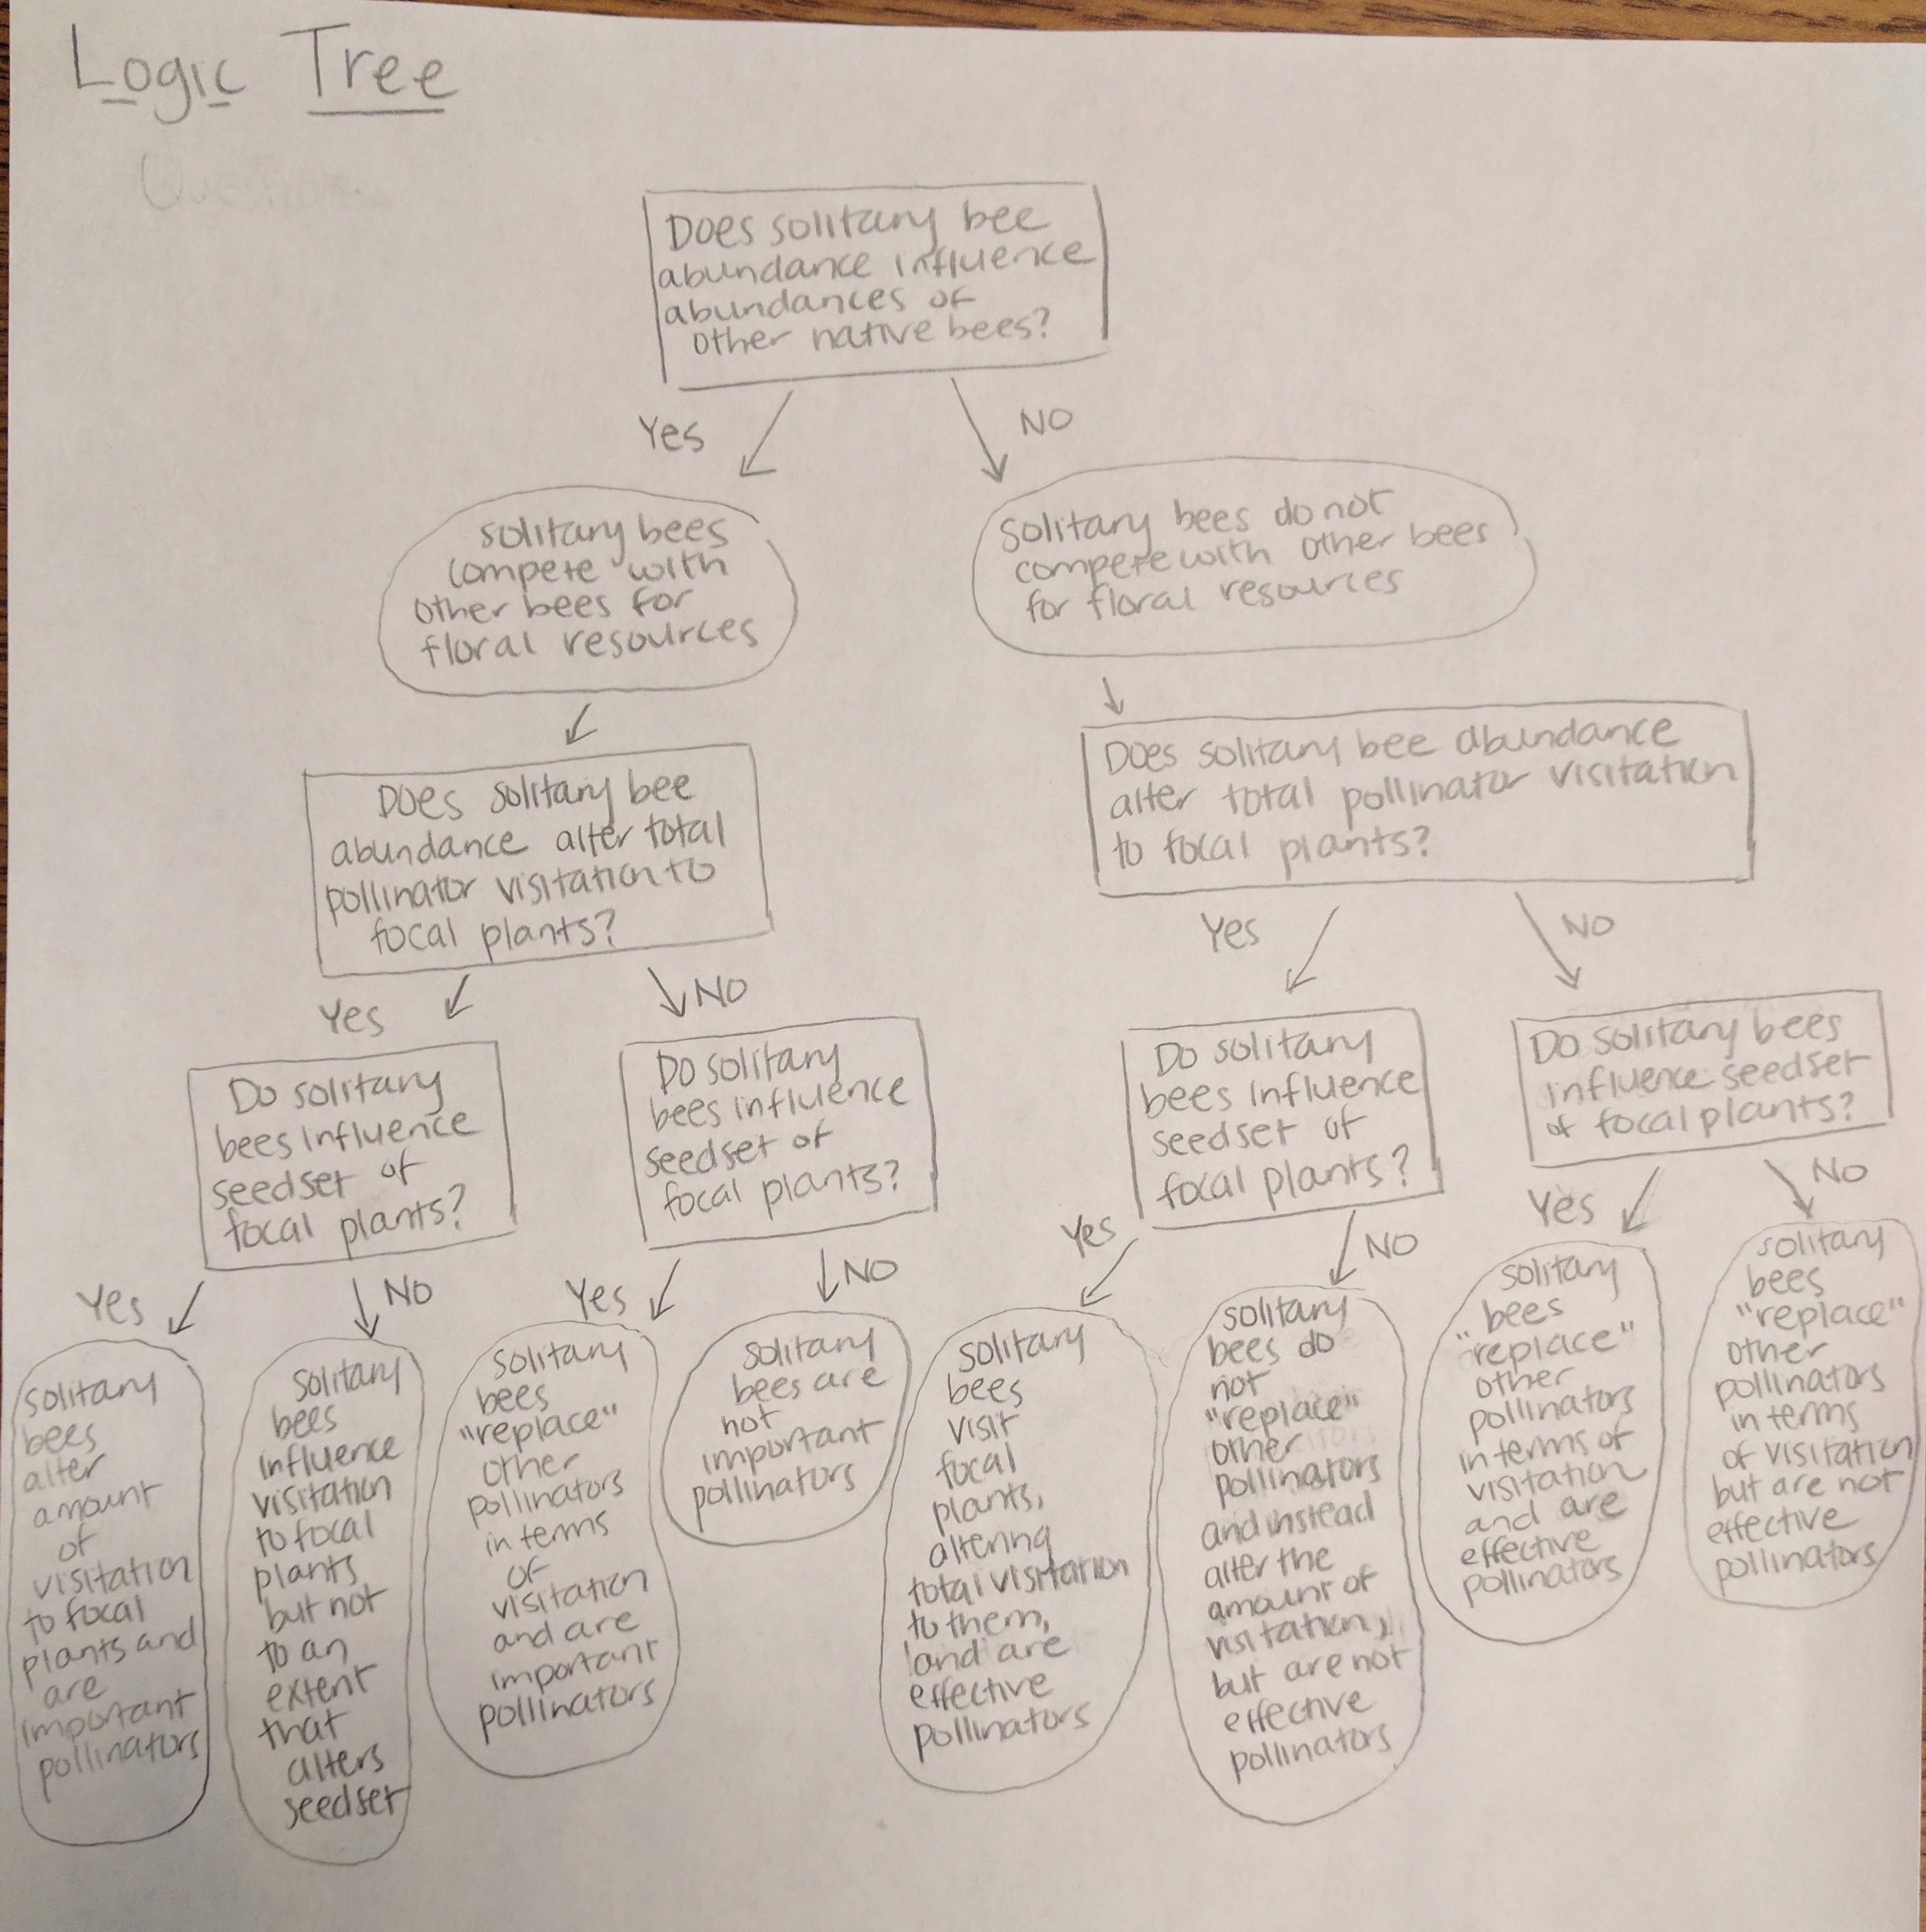 Logic Tree
Question
Does solitary bee
abundance influence
abundances of
other native bees?
Yes
NO
solitary bees
compete with
other bees for
floral resources
solitary bees do not
compete with other bees
for floral resources
Does solitary bee
abundance alter total
pollinator visitation to
focal plants?
Does solitary bee abundance
alter total pollinator visitation
to focal plants?
Yes
NO
Yes
NO
Do solitary
bees influence
seedset of
focal plants?
Do solitary
bees influence
seedset of
focal plants?
Do solitary
bees influence
seedset of
focal plants?
Do solitary bees
influence seedset
of focal plants?
Yes
NO
Yes
NO
Yes
NO
Yes
NO
solitary
bees
alter
amount
of
visitation
to focal
plants and
are
important
pollinators
solitary
bees
influence
visitation
to focal
plants
but not
to an
extent
that
alters
seedset
solitary
bees
"replace"
other
pollinators
in terms
of
visitation
and are
important
pollinators
solitary
bees are
not
important
pollinators
solitary
bees
visit
focal
plants,
altering
total visitation
to them,
and are
effective
pollinators
solitary
bees do
not
"replace"
other
pollinators
and instead
alter the
amount of
visitation,
but are not
effective
pollinators
solitary
bees
"replace"
other
pollinators
in terms of
visitation
and are
effective
pollinators
solitary
bees
"replace"
other
pollinators
in terms
of visitation
but are not
effective
pollinators